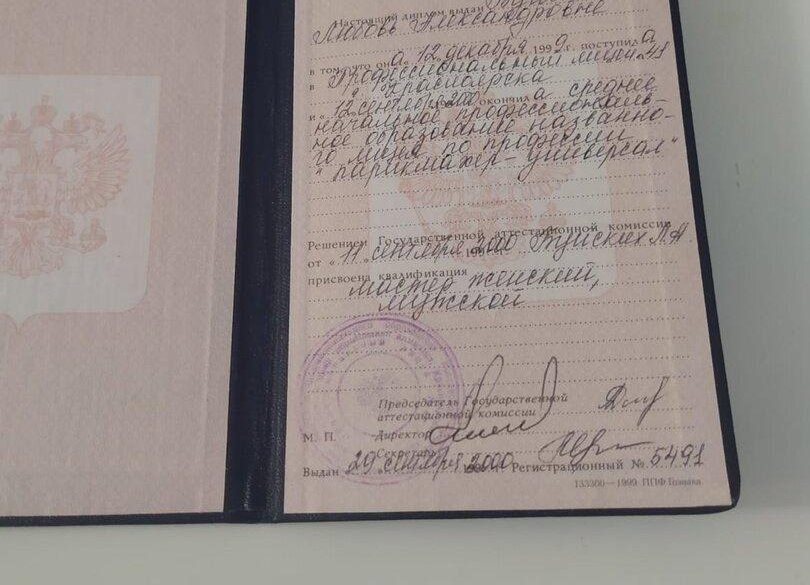 Настоящий диплом выдан
Любовь Александровне
в том, что она 12 декабря 1999 г. поступила
в Профессиональный лицей №
г. Красноярска
и « 12 сентября 2000 окончила среднее
начальное профессиональ-
ное образование названно-
го лицея по профессии
" парикмахер - универсал "
Решением Государственной аттестационной комиссии
от « 11 » сентября 2000 Л. А.
присвоена квалификация
мастер женский,
мужской
Председатель Государственной
аттестационной комиссии
М. П. Директор
Секретарь
Выдан « 29 » сентября 2000 Регистрационный № 5491
133300—1999. ППФ Гознака.